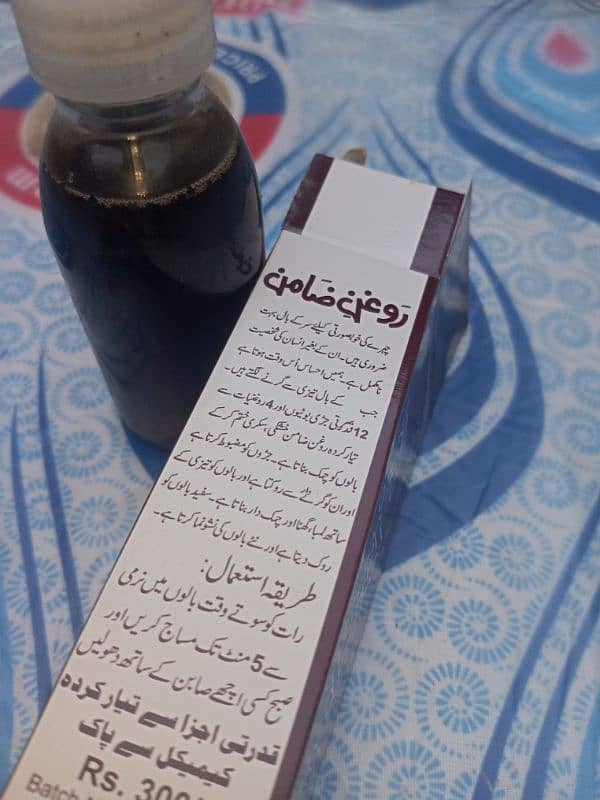 روغنِ ضامن
چہرے کی خوبصورتی کیلئے سر کے بال بہت
ضروری ہیں۔ ان کے بغیر انسان کی شخصیت
نامکمل ہے۔ ہمیں احساس اُس وقت ہوتا ہے
جب کے بال تیزی سے گرنے لگتے ہیں۔
12 قدرتی جڑی بوٹیوں اور 4 روغنیات سے
تیار کردہ روغن ضامن خشکی، سکری ختم کر کے
بالوں کو چمک بناتا ہے۔ جڑوں کو مضبوط کرتا ہے
اور ان کو گرنے سے روکتا ہے اور بالوں کو تیزی کے
ساتھ لمبا، گھنا اور چمک دار بناتا ہے۔ سفید بالوں کو
روک دیتا ہے اور نئے بالوں کی نشوونما کرتا ہے۔
طریقہ استعمال:
رات کو سوتے وقت بالوں میں نرمی
سے 5 منٹ تک مساج کریں اور
صبح کسی اچھے صابن کے ساتھ دھولیں
قدرتی اجزا سے تیار کردہ
کیمیکل سے پاک
Rs. 300/
Batch